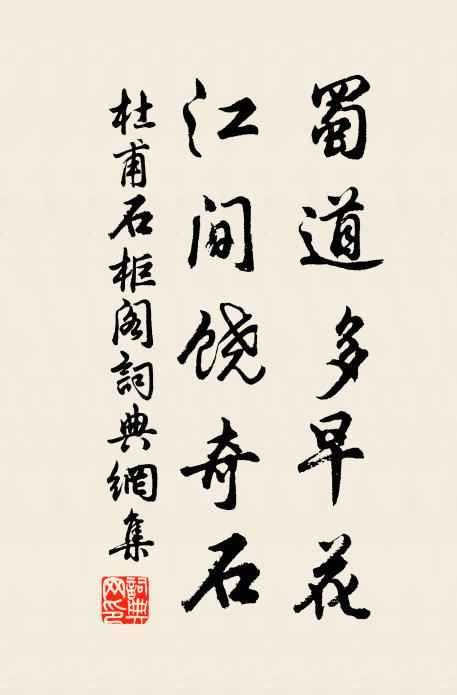 蜀道多早花
江间饶奇石
杜甫石柜阁詞典網集
詞典网印